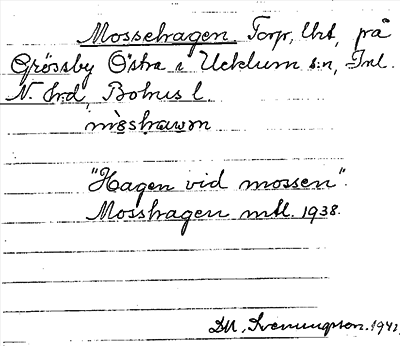 Mossehagen, Torp, Uht, på
Grössby Östra i Ucklum s:n, Inl.
N. hrd, Bohus l.
"Hagen vid mossen".
Mosshagen mtl. 1938.
DU, Svenungson. 1942